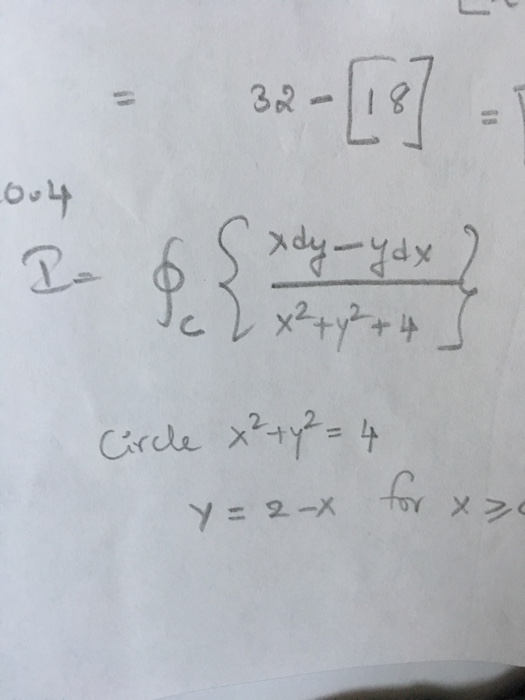 = 32 - [18] =
0.4
I = ∮_C { (xdy - ydx) / (x² + y² + 4) }
Circle x² + y² = 4
y = 2 - x for x ≥